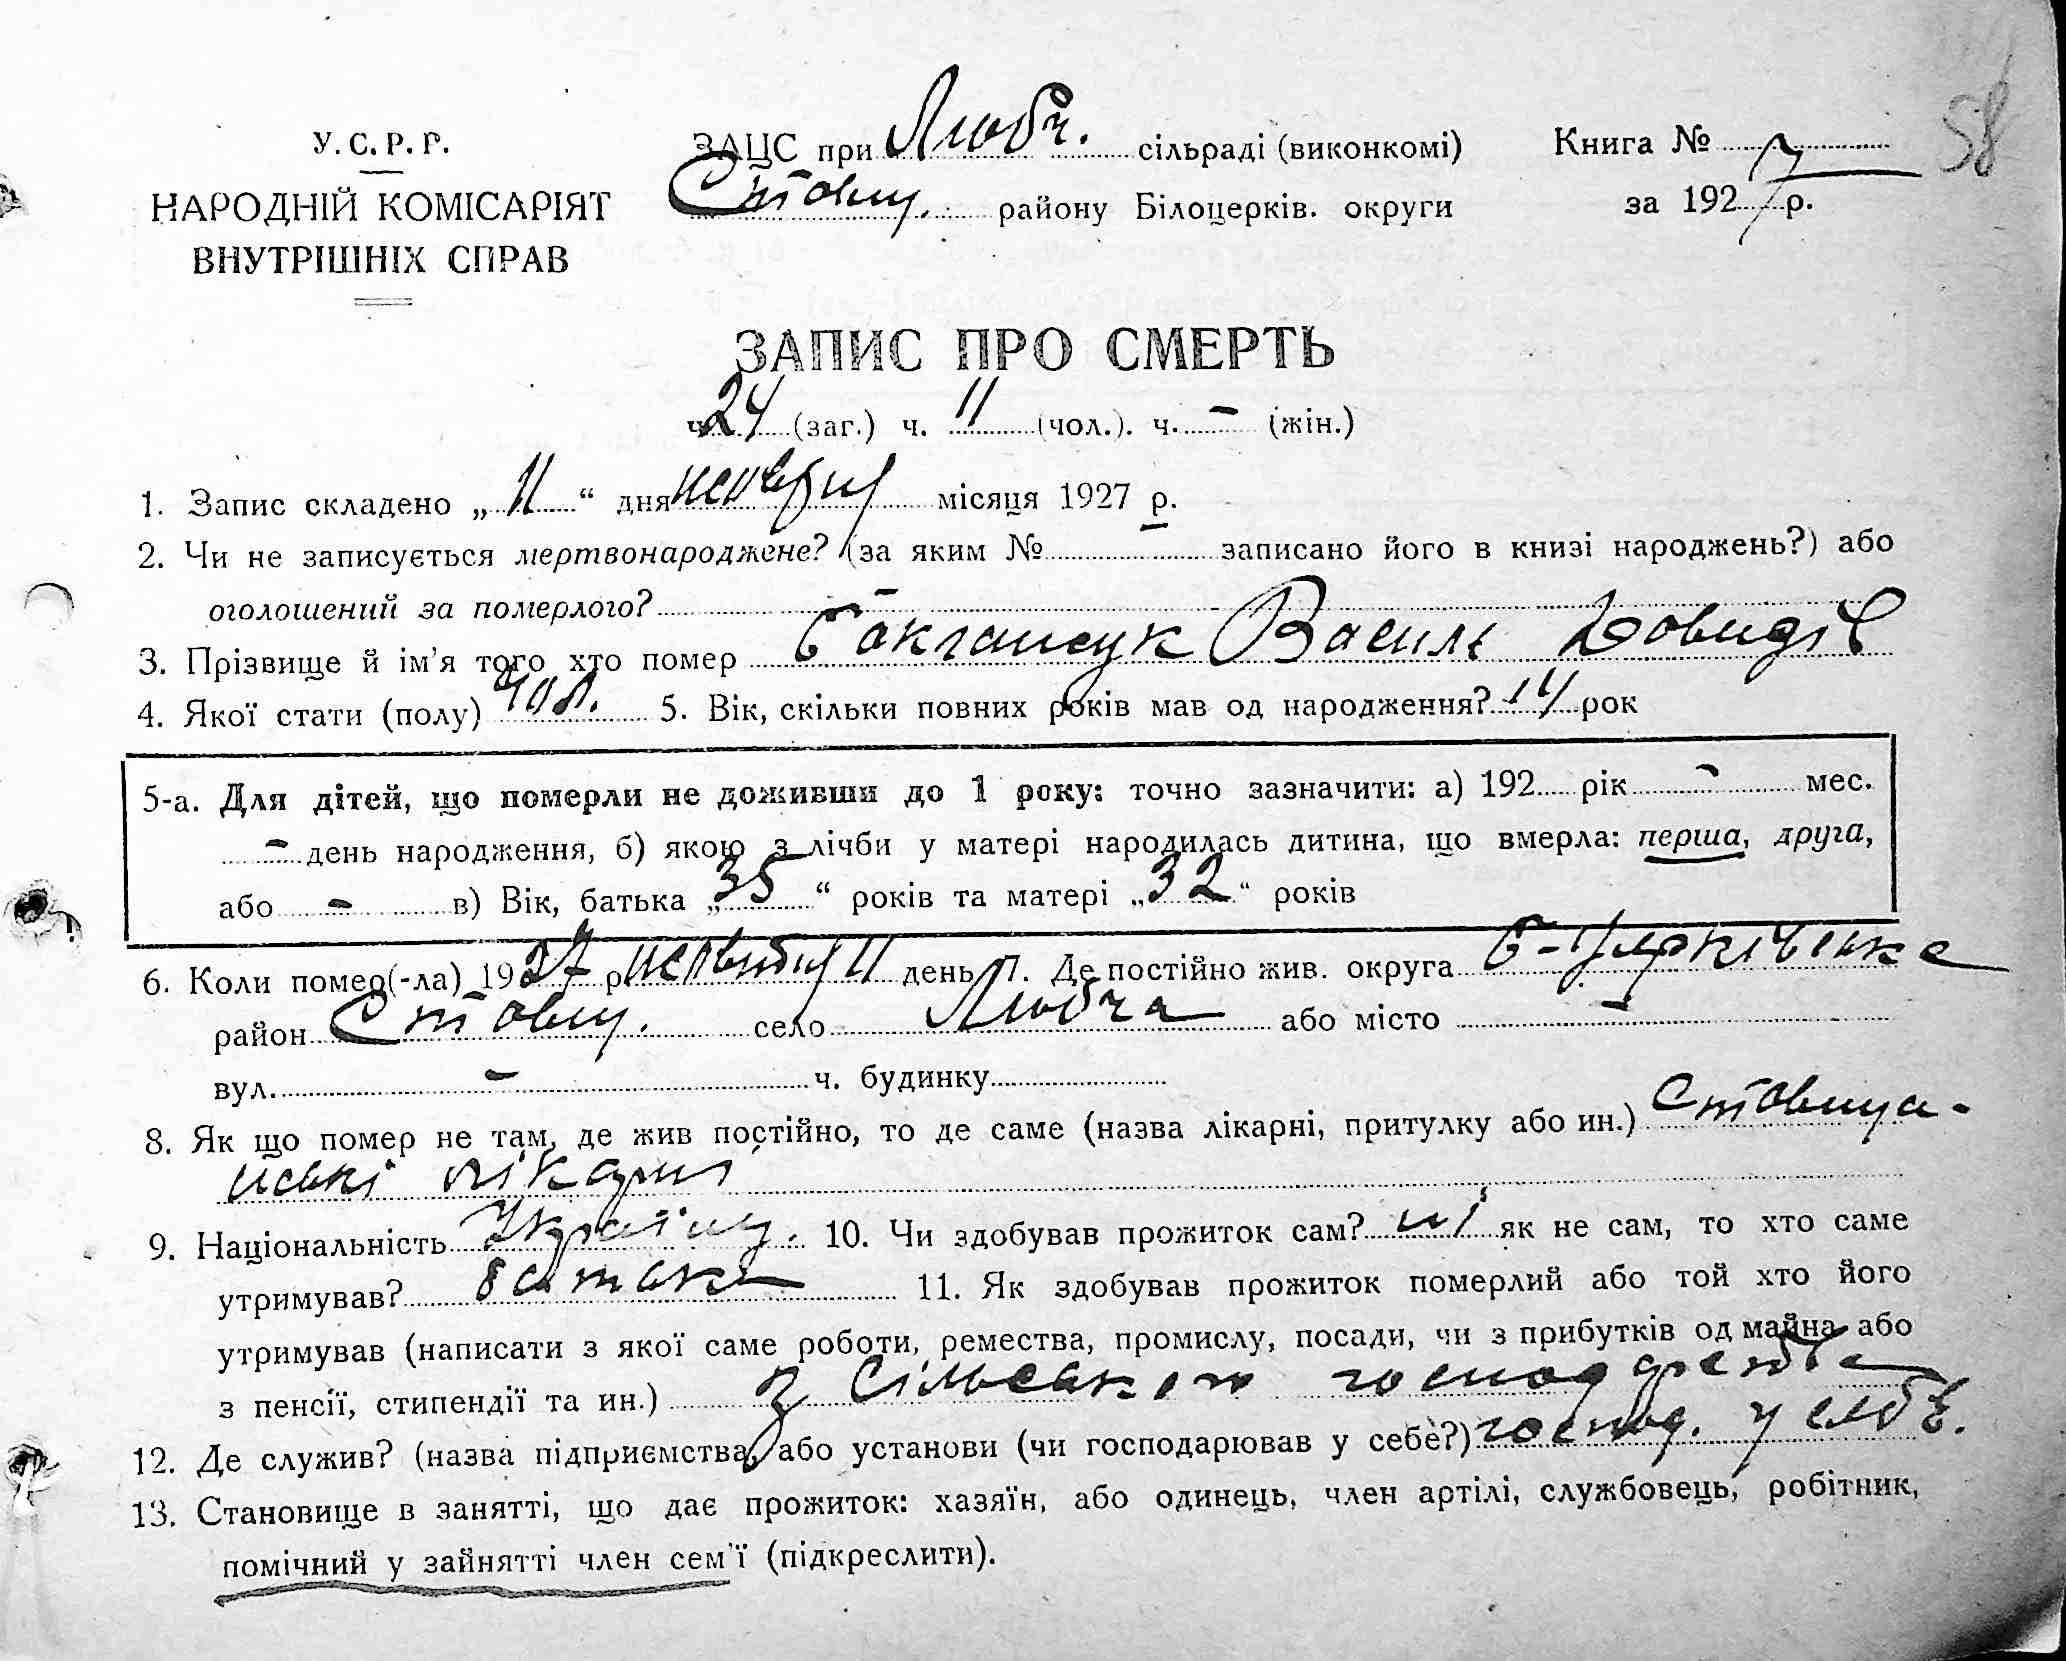 У. С. Р. Р.
НАРОДНІЙ КОМІСАРІЯТ
ВНУТРІШНІХ СПРАВ
ЗАЦС при Любч. сільраді (виконкомі)
Ставищ. району Білоцерків. округи
Книга № 7
за 1927 р.
58
ЗАПИС ПРО СМЕРТЬ
ч. 24 (заг.) ч. 11 (чол.). ч. - (жін.)
1. Запис складено „11“ дня місяця 1927 р.
2. Чи не записується мертвонароджене? (за яким № - записано його в книзі народжень?) або
оголошений за померлого? -
3. Прізвище й ім'я того хто помер Василь Довидів
4. Якої стати (полу) чол. 5. Вік, скільки повних років мав од народження? 14 рок
5-а. Для дітей, що померли не доживши до 1 року: точно зазначити: а) 192 рік - мес.
- день народження, б) якою з лічби у матері народилась дитина, що вмерла: перша, друга,
або - в) Вік, батька „35“ років та матері „32“ років
6. Коли помер(-ла) 1927 р 11 день 7. Де постійно жив. округа Б-Церківська
район Ставищ. село Любча або місто -
вул. - ч. будинку
8. Як що помер не там, де жив постійно, то де саме (назва лікарні, притулку або ин.) Ставища-
нські лікарні
9. Національність Україн. 10. Чи здобував прожиток сам? ні як не сам, то хто саме
утримував? батько 11. Як здобував прожиток померлий або той хто його
утримував (написати з якої саме роботи, ремества, промислу, посади, чи з прибутків од майна або
з пенсії, стипендії та ин.) з Сільського господарства
12. Де служив? (назва підприємства, або установи (чи господарював у себе?) господ. у себе.
13. Становище в занятті, що дає прожиток: хазяїн, або одинець, член артілі, службовець, робітник,
помічний у зайнятті член сем'ї (підкреслити).